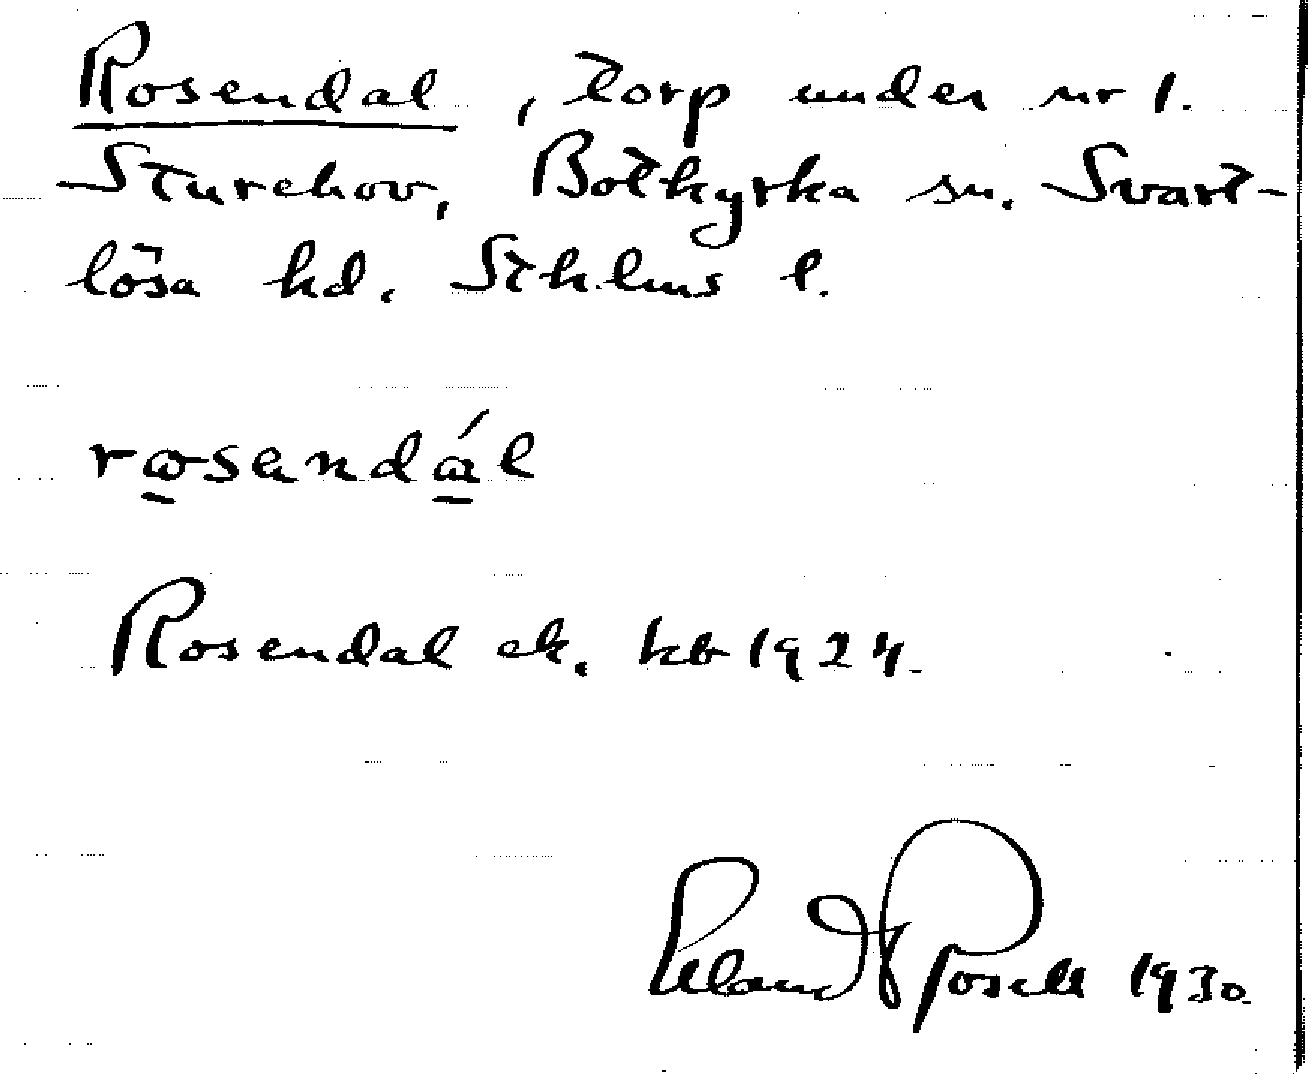 Rosendal, torp under nr 1.
Sturehov, Botkyrka sn. Svart-
lösa hd. Sthlms l.
rosendál
Rosendal ek. kb 1924.
Roland Posell 1930